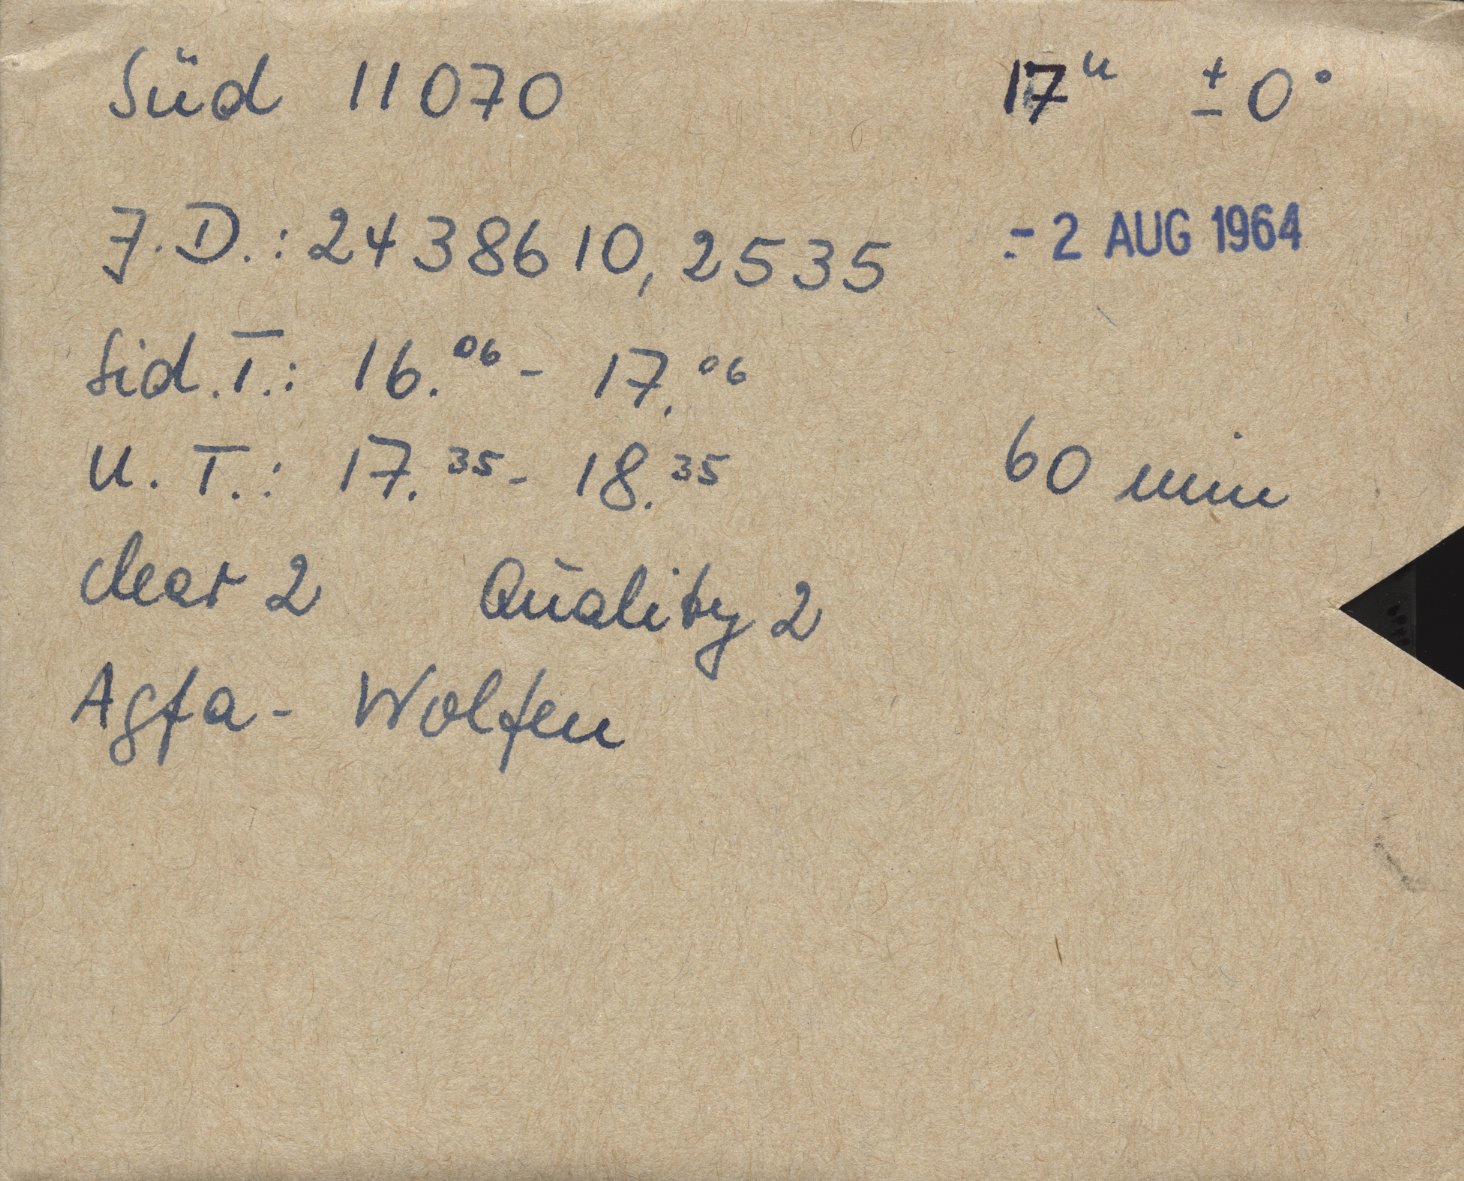 Süd 11070 17ᵘ ±0°
J.D.: 2438610,2535 - 2 AUG 1964
Sid.T.: 16.⁰⁶ - 17.⁰⁶
U.T.: 17.³⁵ - 18.³⁵ 60 min
clear 2 Quality 2
Agfa - Wolfen